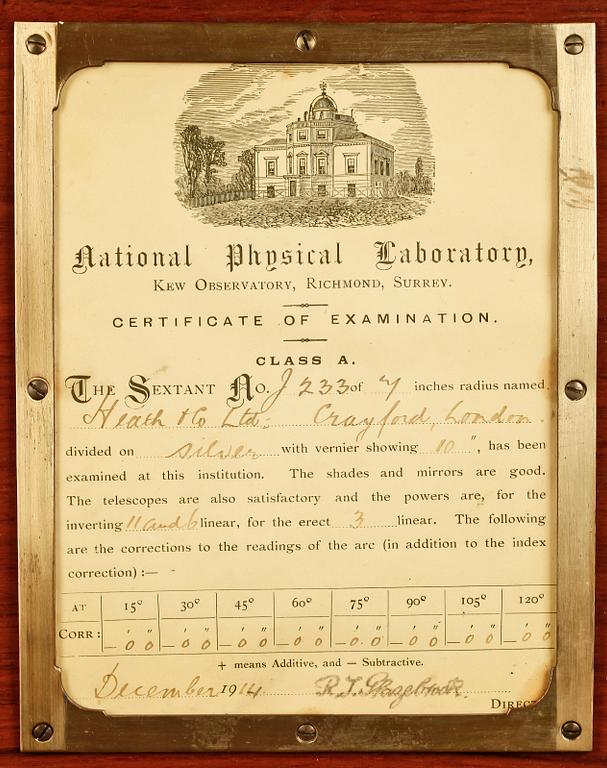 National Physical Laboratory,
KEW OBSERVATORY, RICHMOND, SURREY.
CERTIFICATE OF EXAMINATION.
CLASS A.
THE SEXTANT No. J 233 of 7 inches radius named,
Heath & Co Ltd: Crayford, London.
divided on silver with vernier showing 10", has been
examined at this institution. The shades and mirrors are good.
The telescopes are also satisfactory and the powers are, for the
inverting 11 and 6 linear, for the erect 3 linear. The following
are the corrections to the readings of the arc (in addition to the index
correction) :—
AT 15° 30° 45° 60° 75° 90° 105° 120°
CORR: — 0' 0" — 0' 0" — 0' 0" — 0' 0" — 0' 0" — 0' 0" — 0' 0" — 0' 0"
+ means Additive, and — Subtractive.
December 1914 R.T. Glazebrook.
DIREC